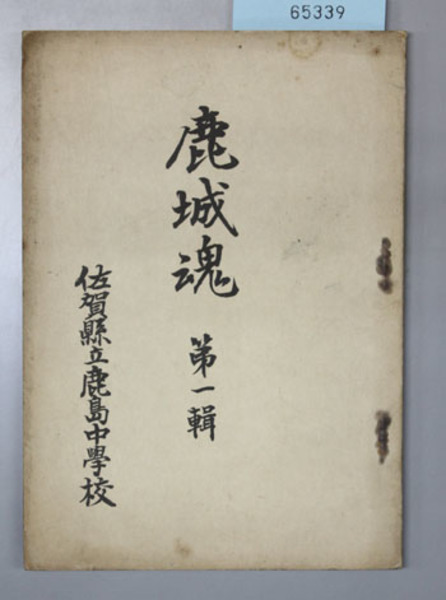 65339
鹿城魂
第一輯
佐賀縣立鹿島中學校